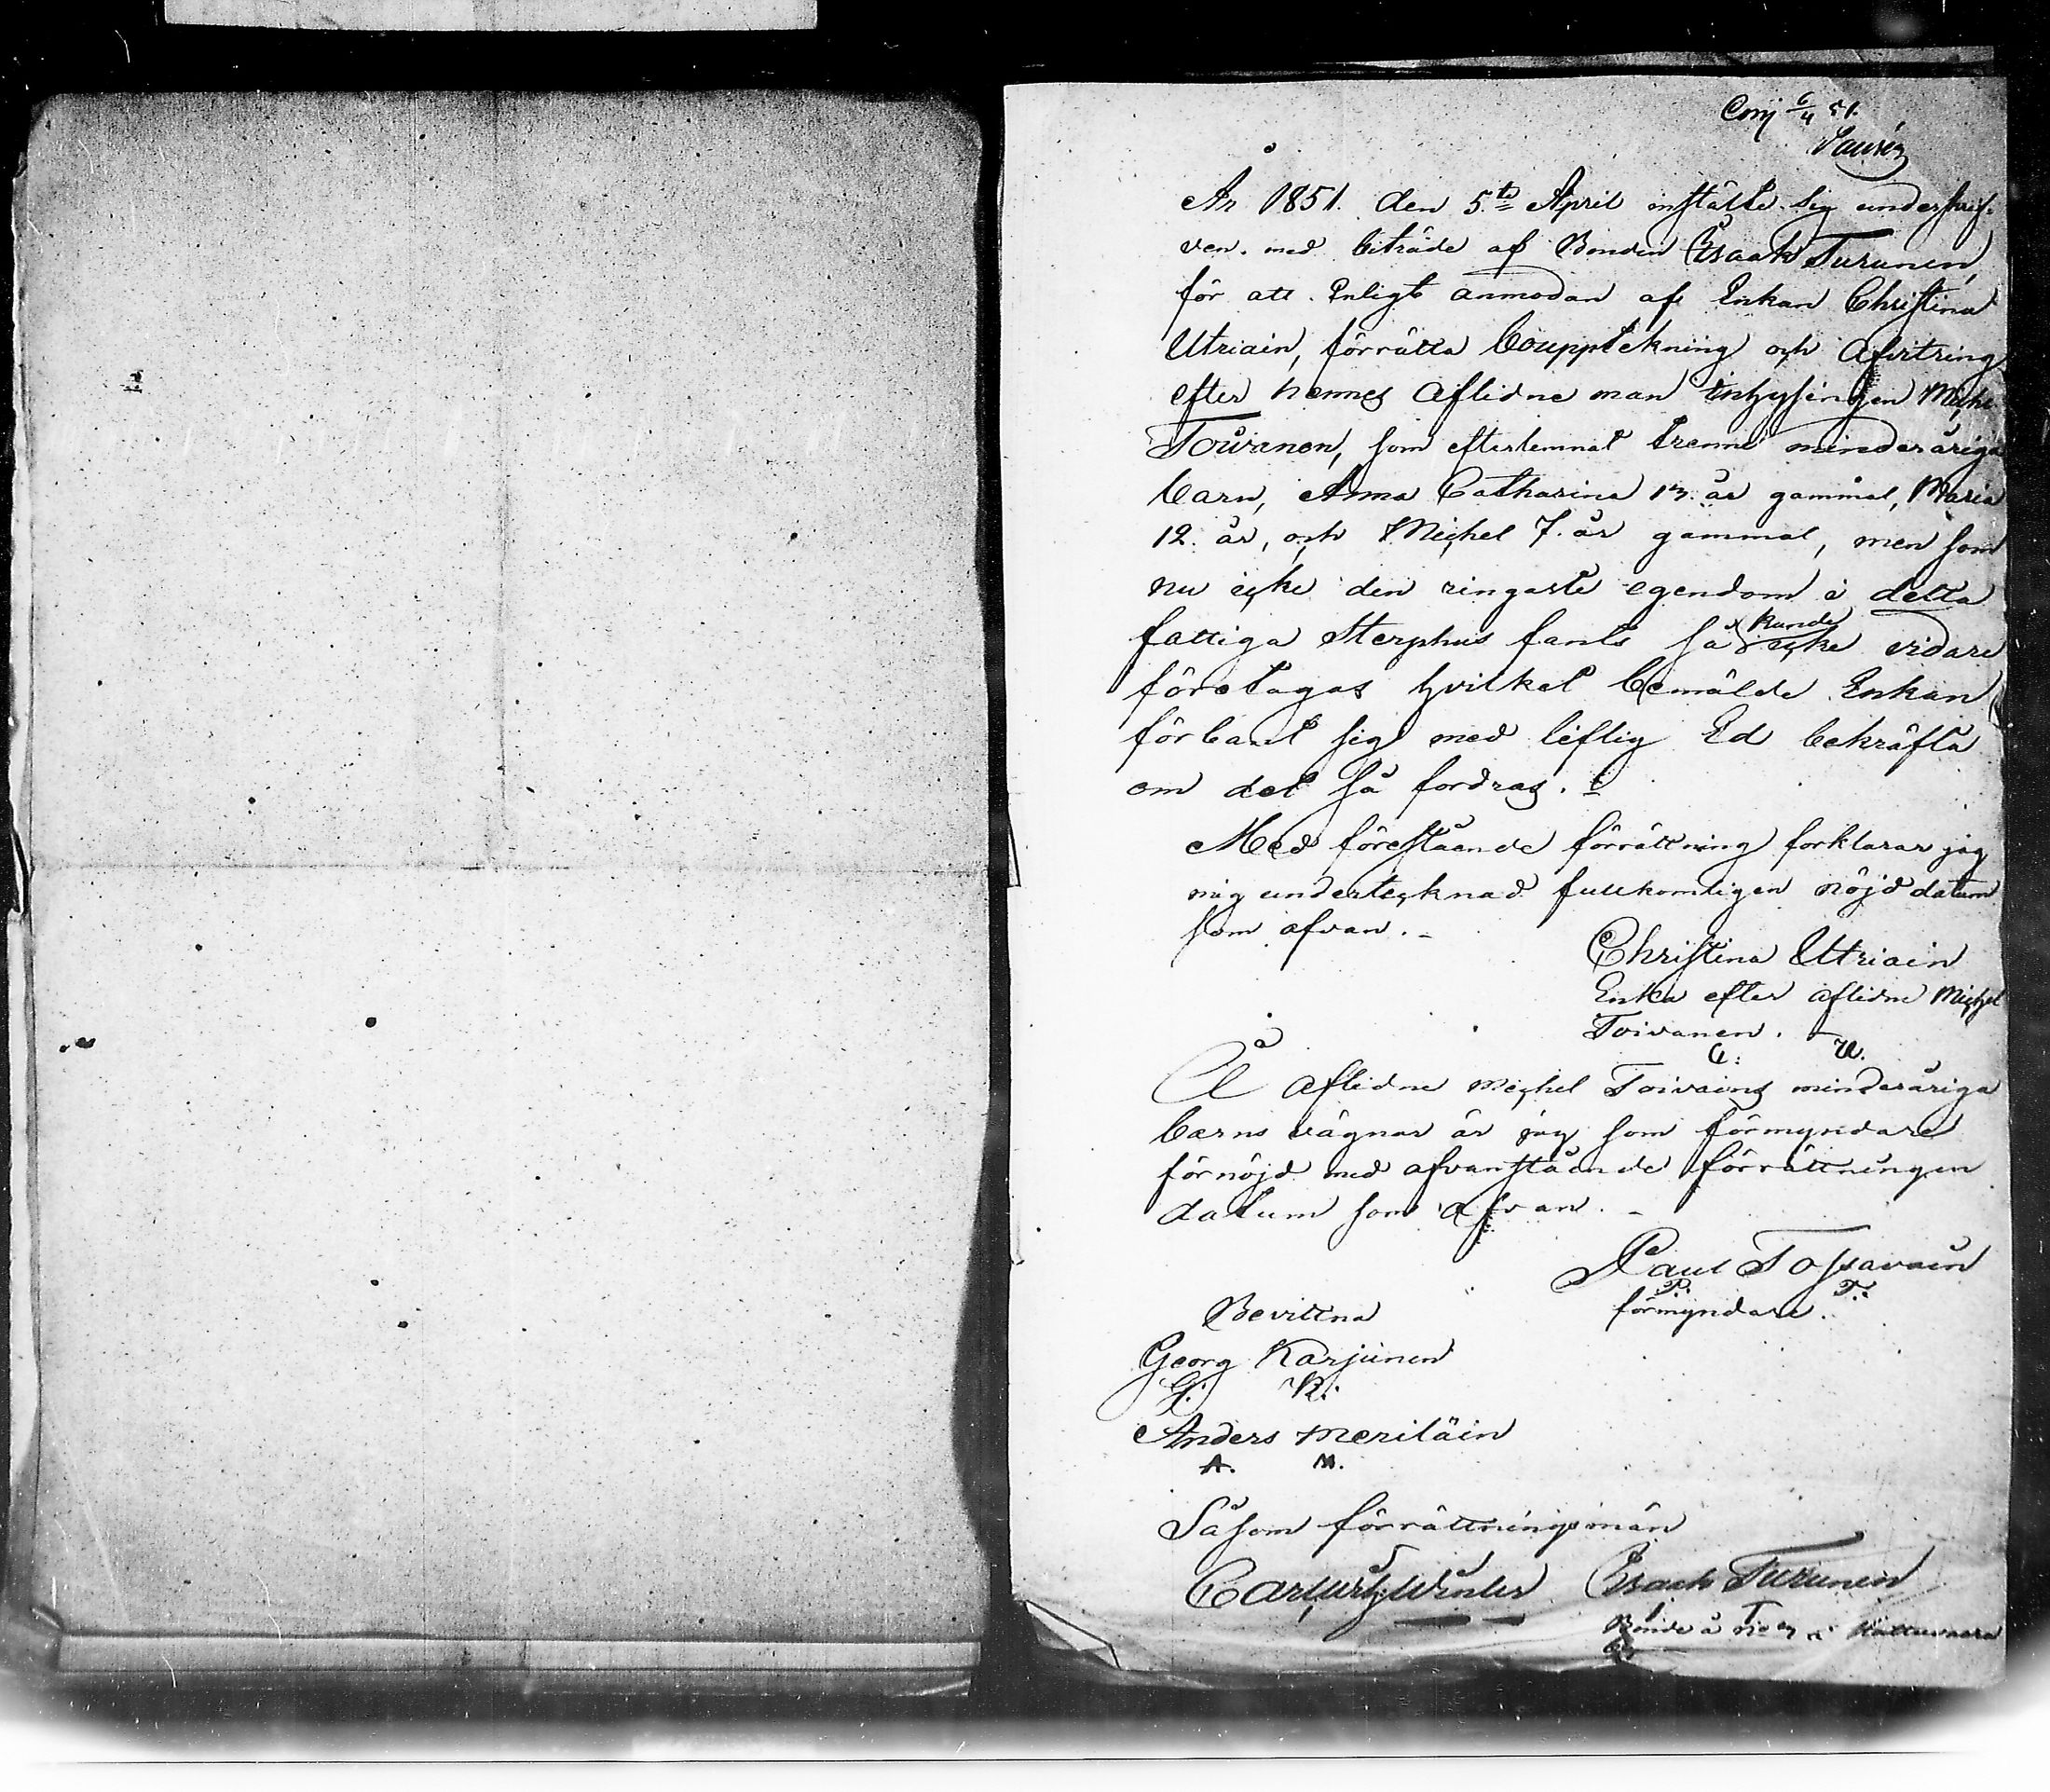 6/4 51.
År 1851. den 5te April instälte sig underskrif-
ven. med biträde af Bonden Isaak Turunen,
för att. Enligt anmodan af Enkan Christina
Utriain, förrätta bouppteckning och afvitring
efter hennes aflidne man Inhysingen Michel
Toivanen, som efterlemnat trenne minderåriga
barn, Anna Catharina år gammal, Maria
12. år, och Michel 7. år gammal, men som
nu icke den ringaste egendom i detta
fattiga Sterphus fants så kunde icke vidare
företagas hvilket bemälde Enkan
förbant sig med liflig Ed bekräfta
om det så fordras.
Med föreståënde förrättning forklarar jag
mig undertecknad fullkomligen nöjd datum
som afvan. -
Christina Utriain
Enka efter aflidne Michel
Toivanen. -
C: U.
Å Aflidne Michel Toivains minderåriga
barns vägnar är jag som förmyndare
förnöjd med afvanstående förrättningen
datum som afvan. -
Paul Tossavain
P. T.
förmyndare.
Bevittna
Georg Karjunen
G. K.
Anders Meriläin
A. M.
Såsom förrättningsmän
Isaak Turunen
I T
Bonde å
by